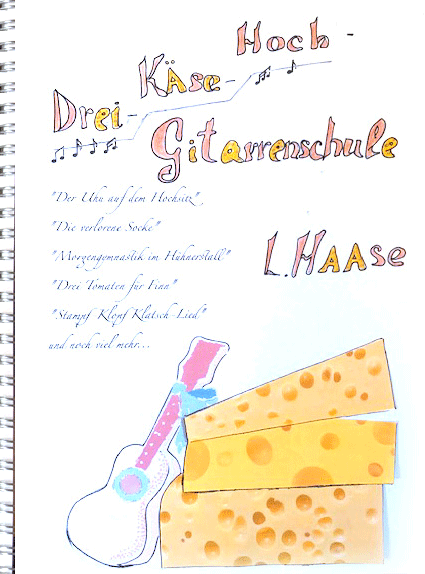 Drei-Käse-Hoch-
Gitarrenschule
"Der Uhu auf dem Hochsitz"
"Die verlorene Socke"
L. Haase
"Morgengymnastik im Hühnerstall"
"Drei Tomaten für Finn"
"Stampf Klopf Klatsch-Lied"
und noch viel mehr...